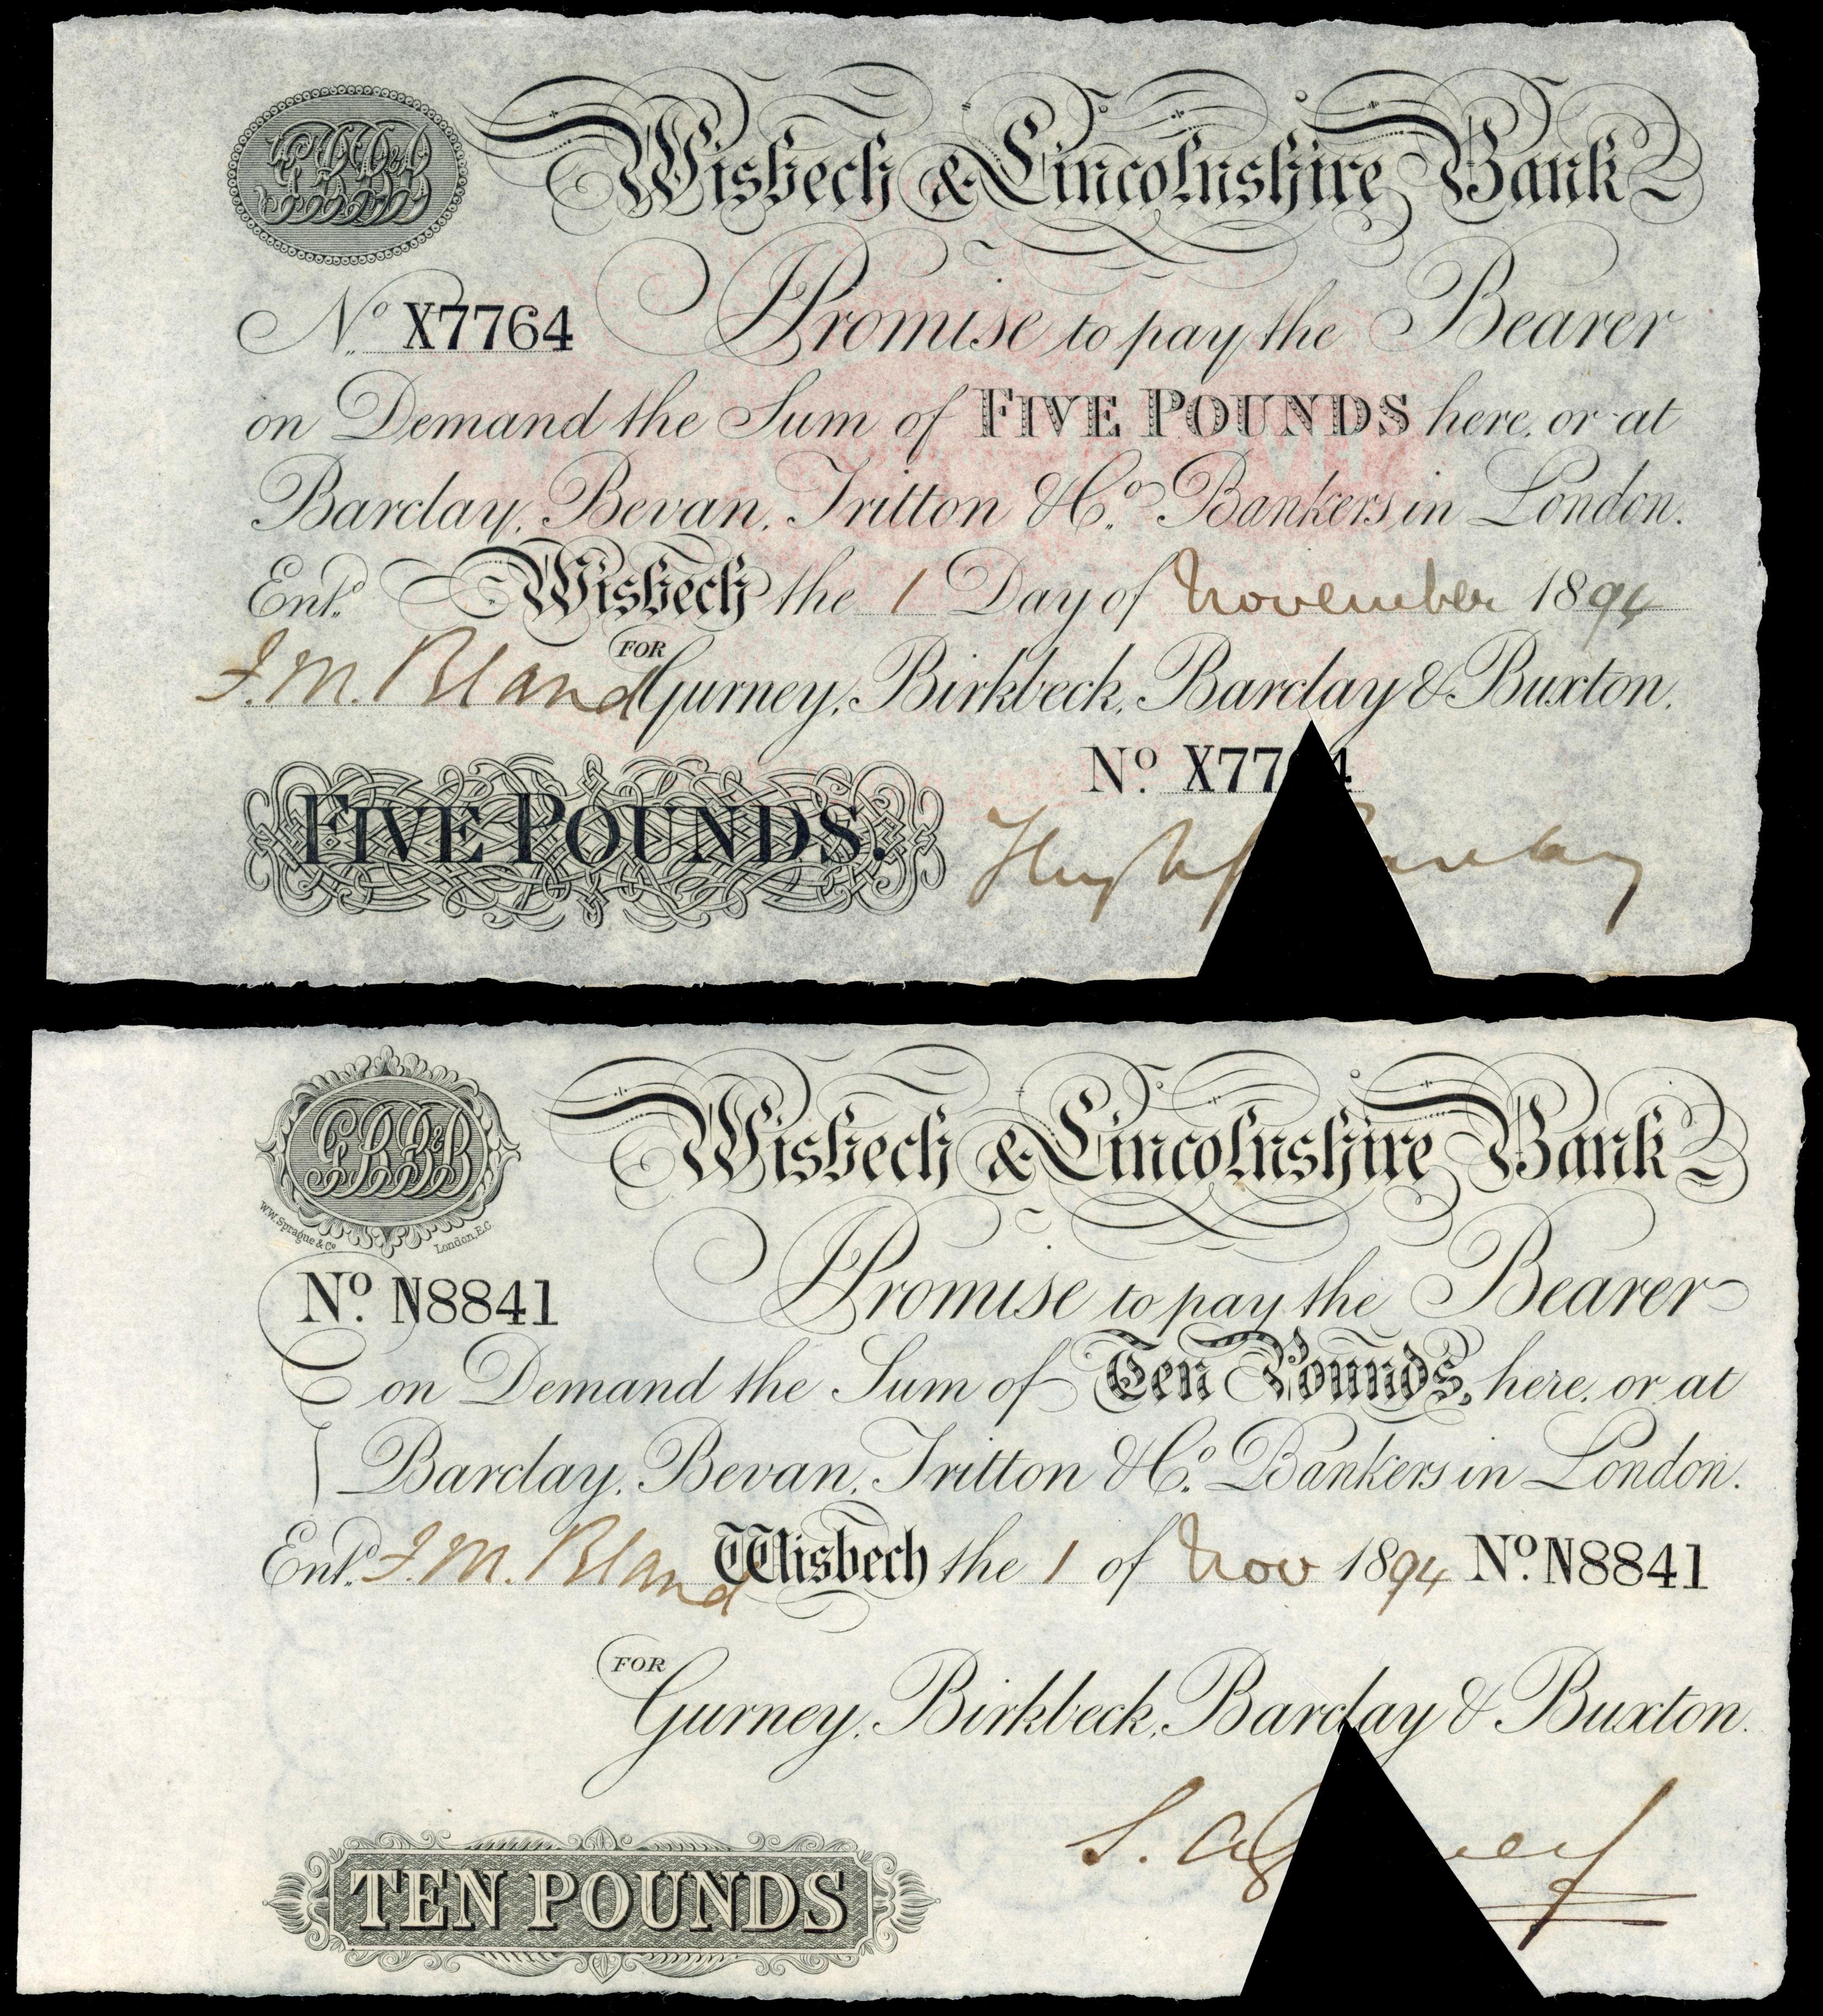 Wisbech & Lincolnshire Bank
No X7764 I Promise to pay the Bearer
on Demand the Sum of FIVE POUNDS here, or at
Barclay, Bevan, Tritton & Co. Bankers in London.
Entd. Wisbech the 1 Day of November 1894
F.M. Bland FOR Gurney, Birkbeck, Barclay & Buxton.
No. X77 4
FIVE POUNDS.
Hugh
GBB&B
Wisbech & Lincolnshire Bank
W.W. Sprague & Co. London, E.C.
No. N8841 I Promise to pay the Bearer
on Demand the Sum of Ten Pounds, here, or at
Barclay, Bevan, Tritton & Co. Bankers in London.
Entd. F.M. Bland Wisbech the 1 of Nov 1894 No. N8841
FOR
Gurney, Birkbeck, Barclay & Buxton.
TEN POUNDS